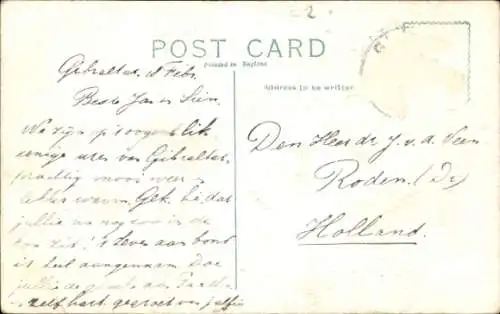 2
POST CARD
Printed in England
Address to be written
Gibraltar, 8 Febr.
Beste Jan en Sien,
We zijn op 't oogenblik
eenige uren van Gibraltar,
prachtig mooi weer
lekker warm. Gek hé, dat
jullie nu nog zoo in de
zit! 't Leven aan boord
is heel aangenaam. Doe
jullie de groeten aan
zelf hart. gegroet van jullie
Den Heer J. v. d. Veen
Roden. (Dr.)
Holland.